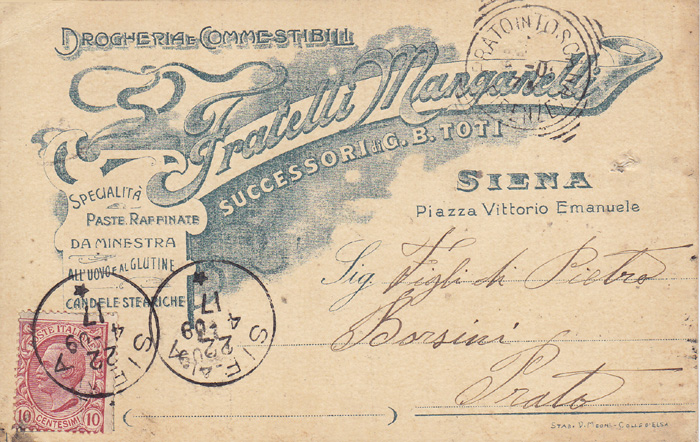 DROGHERIA E COMMESTIBILI
Fratelli Manganelli
SUCCESSORI di G. B. TOTI
SIENA
Piazza Vittorio Emanuele
SPECIALITÀ
PASTE RAFFINATE
DA MINESTRA
ALL'UOVO E AL GLUTINE
E
CANDELE STEARICHE
PRATO IN TOSCANA
FIRENZE
Sig. Figli di Pietro
Borsini
Prato
SIENA
17
4
22
09
SIENA
17
4
22
09
POSTE ITALIANE
10 CENTESIMI 10
STAB. V. MEONI - COLLE D'ELSA